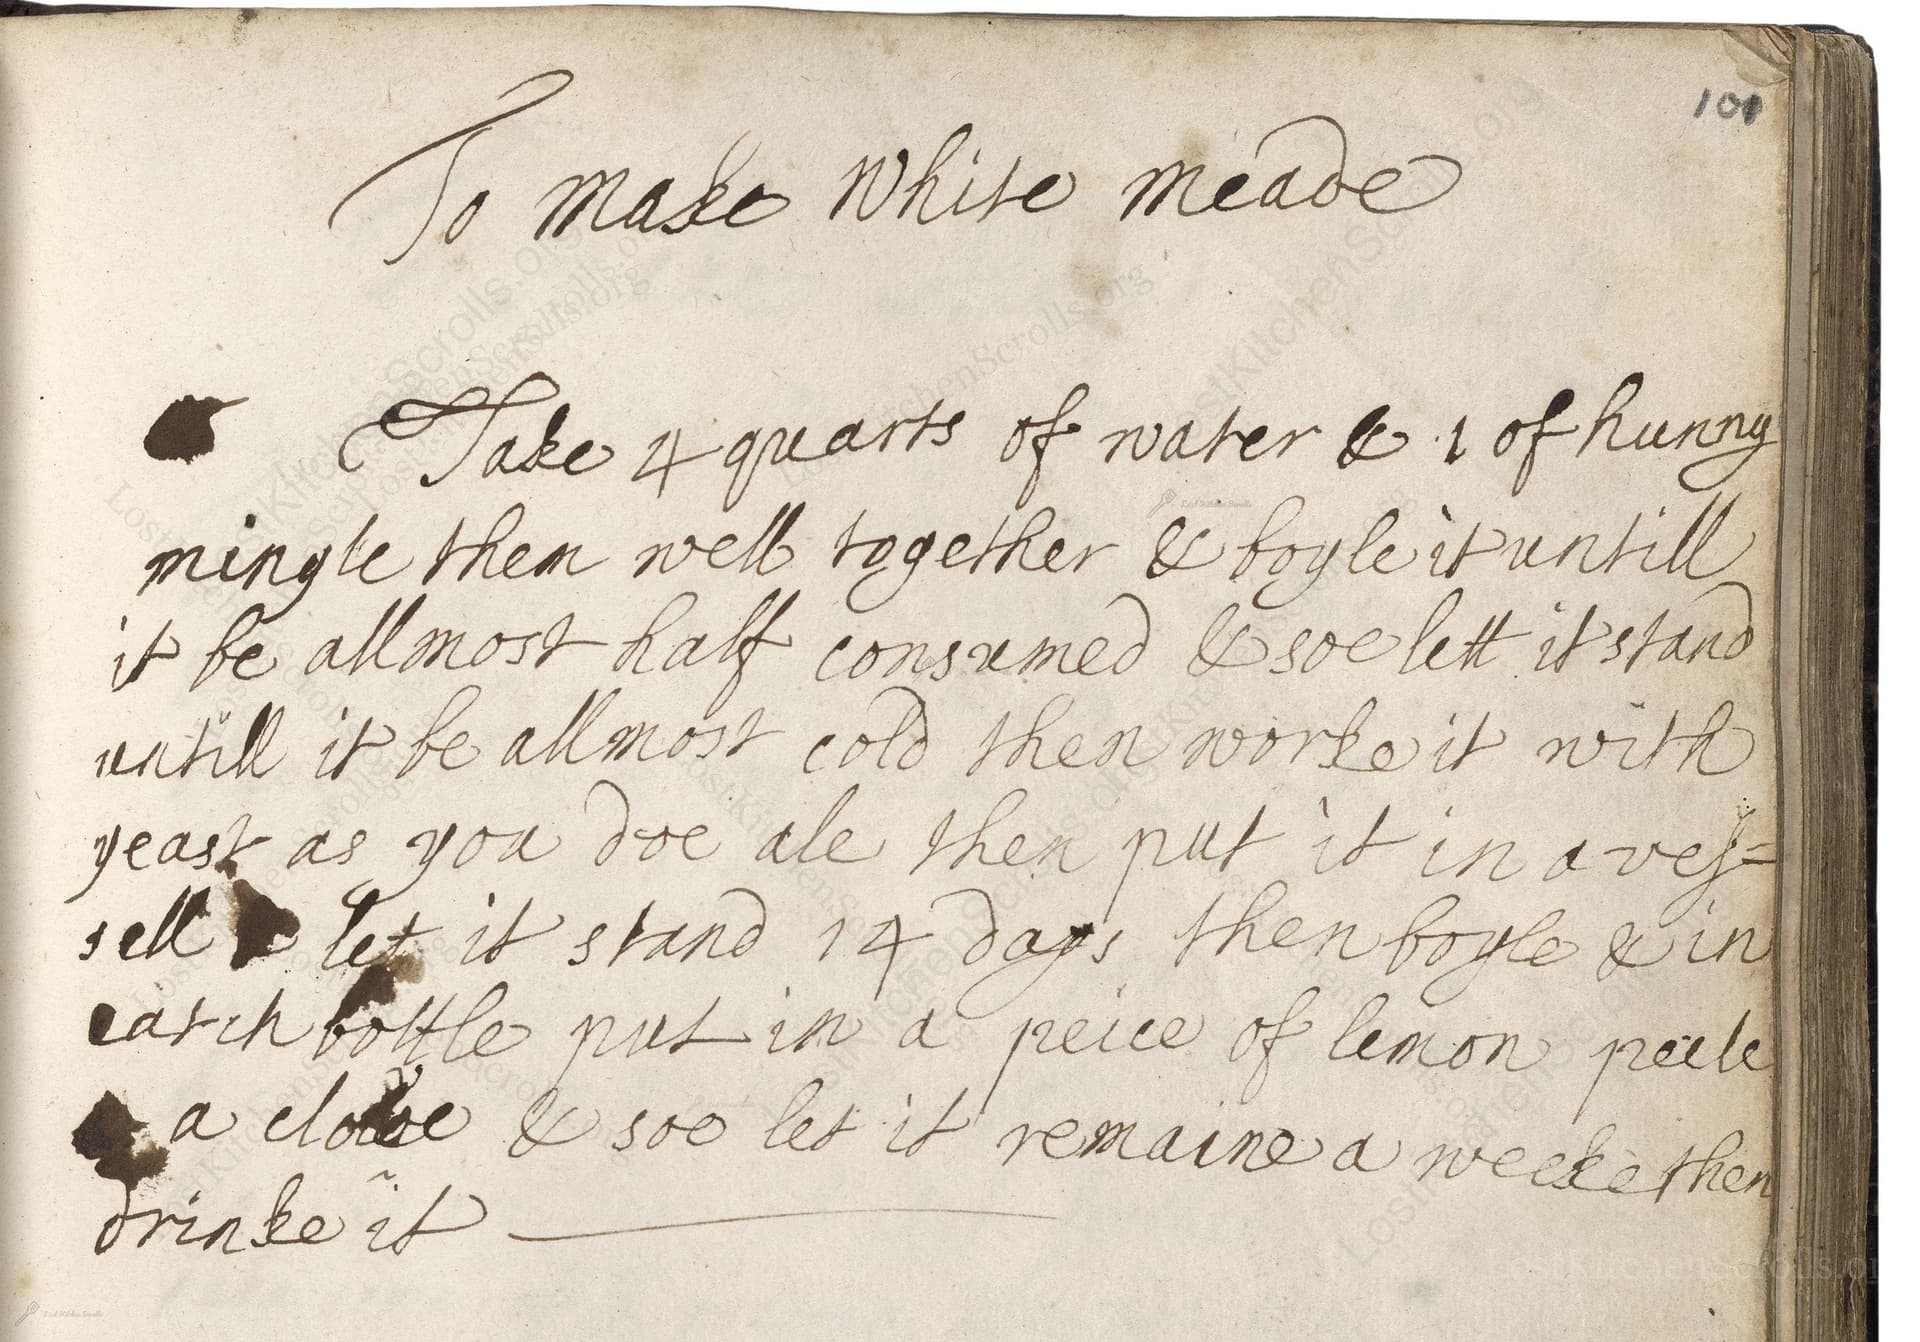 101
To make white meade
Take 4 quarts of water & 1 of hunny
mingle then well together & boyle it untill
it be allmost half consumed & soe lett it stand
untill it be allmost cold then worke it with
yeast as you doe ale then put it in a ves=
sell let it stand 14 days then boyle & in
eatch bottle put in a peice of lemon peele
a clove & soe let it remaine a weeke then
drinke it